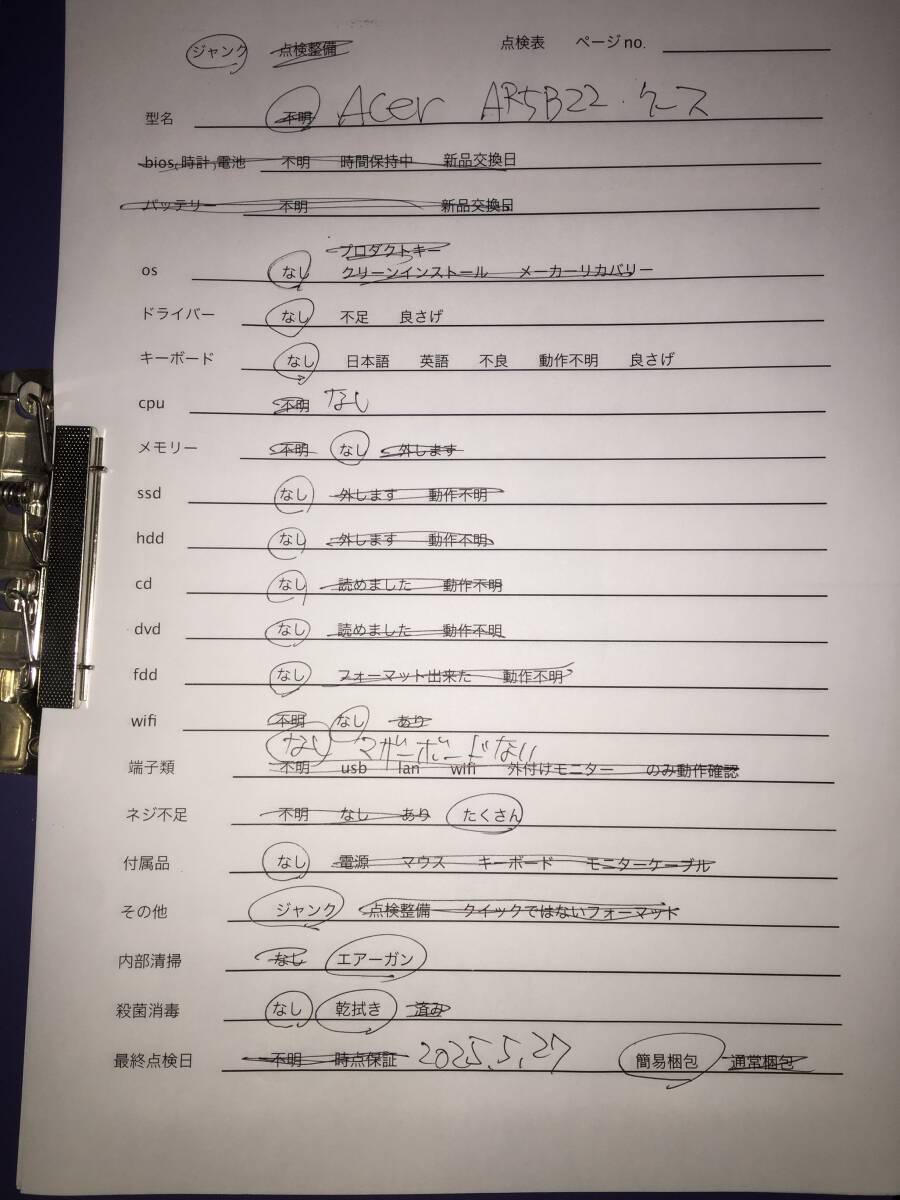 ジャンク 点検整備 点検表 ページno.
型名 不明 Acer AR5B22.ケース
bios,時計,電池 不明 時間保持中 新品交換日
バッテリー 不明 新品交換日
プロダクトキー
os なし クリーンインストール メーカーリカバリー
ドライバー なし 不足 良さげ
キーボード なし 日本語 英語 不良 動作不明 良さげ
cpu 不明 なし
メモリー 不明 なし 外します
ssd なし 外します 動作不明
hdd なし 外します 動作不明
cd なし 読めました 動作不明
dvd なし 読めました 動作不明
fdd なし フォーマット出来た 動作不明
wifi 不明 なし あり
なし マザーボードない
端子類 不明 usb lan wifi 外付けモニター のみ動作確認
ネジ不足 不明 なし あり たくさん
付属品 なし 電源 マウス キーボード モニターケーブル
その他 ジャンク 点検整備 クイックではないフォーマット
内部清掃 なし エアーガン
殺菌消毒 なし 乾拭き 済み
最終点検日 不明 時点保証 2025.5.27 簡易梱包 通常梱包